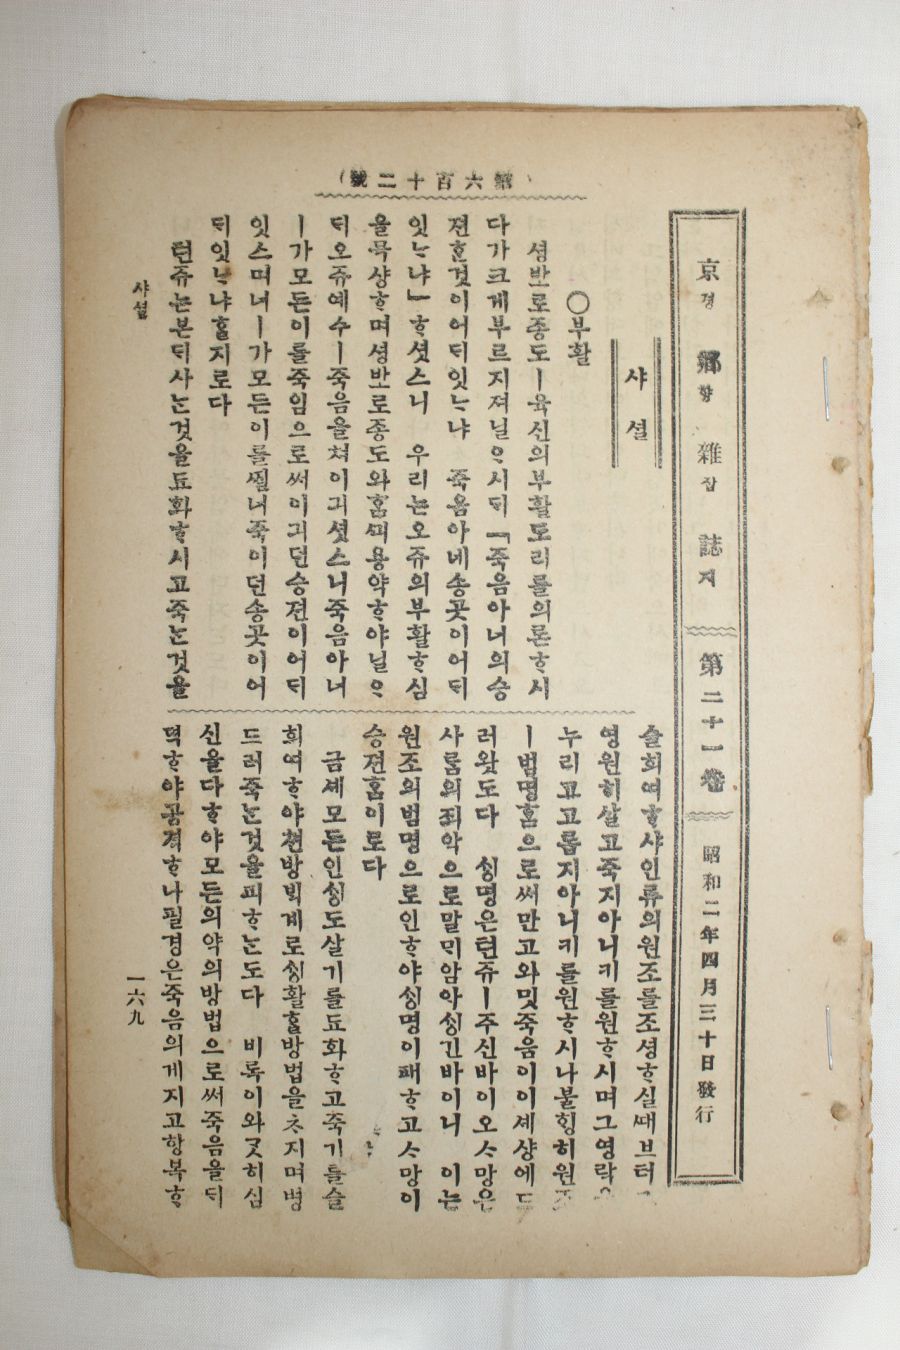 號二十百六第
京경 鄕향 雜잡 誌지 第二十一卷 昭和二年四月三十日發行
샤셜
○부활
셩반로종도ㅣ육신의부활도리를의론ᄒᆞ시
다가크게부르지져닐ᄋᆞ시ᄃᆡ「죽음아너의승
젼ᄒᆞᆫ것이어ᄃᆡ잇ᄂᆞ냐 죽음아네송곳이어ᄃᆡ
잇ᄂᆞ냐」ᄒᆞ셧스니 우리ᄂᆞᆫ오쥬의부활ᄒᆞ심
을묵샹ᄒᆞ며셩반로종도와홈ᄭᅴ용약ᄒᆞ야닐ᄋᆞ
ᄃᆡ오쥬예수ㅣ죽음을쳐이긔셧스니죽음아너
ㅣ가모든이를죽임으로써이긔던승젼이어ᄃᆡ
잇스며너ㅣ가모든이를ᄶᅵᆯ너죽이던송곳이어
ᄃᆡ잇ᄂᆞ냐ᄒᆞᆯ지로다
텬쥬ᄂᆞᆫ본ᄃᆡ사ᄂᆞᆫ것을됴화ᄒᆞ시고죽ᄂᆞᆫ것을
슬희여ᄒᆞ샤인류의원조를조셩ᄒᆞ실ᄯᅢ브터
영원히살고죽지아니키를원ᄒᆞ시며그영락을
누리고고롭지아니키를원ᄒᆞ시나불ᄒᆡᆼ히원조
ㅣ범명홈으로써만고와밋죽음이이셰샹에드
러왓도다 ᄉᆡᆼ명은텬쥬ㅣ주신바이오ᄉᆞ망은
사ᄅᆞᆷ의죄악으로말ᄆᆡ암아ᄉᆡᆼ긴바이니 이ᄂᆞᆫ
원조의범명으로인ᄒᆞ야ᄉᆡᆼ명이패ᄒᆞ고ᄉᆞ망이
승젼홈이로다
금셰모든인ᄉᆡᆼ도살기를됴화ᄒᆞ고죽기를슬
희여ᄒᆞ야쳔방ᄇᆡᆨ계로ᄉᆡᆼ활ᄒᆞᆯ방법을ᄎᆞ지며병
드러죽ᄂᆞᆫ것을피ᄒᆞᄂᆞᆫ도다 비록이와ᄀᆞᆺ히심
신을다ᄒᆞ야모든의약의방법으로써죽음을ᄃᆡ
뎍ᄒᆞ야공격ᄒᆞ나필경은죽음의게지고항복ᄒᆞ
샤셜
一六九